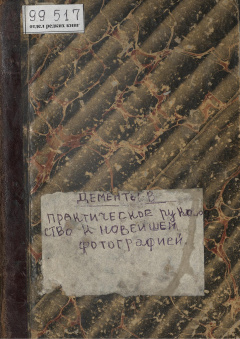 99 517
отдел редких книг
ДЕМЕНТЬЕВ
ПРАКТИЧЕСКОЕ РУКО
СТВО К НОВЕЙШЕЙ
ФОТОГРАФИЕЙ.